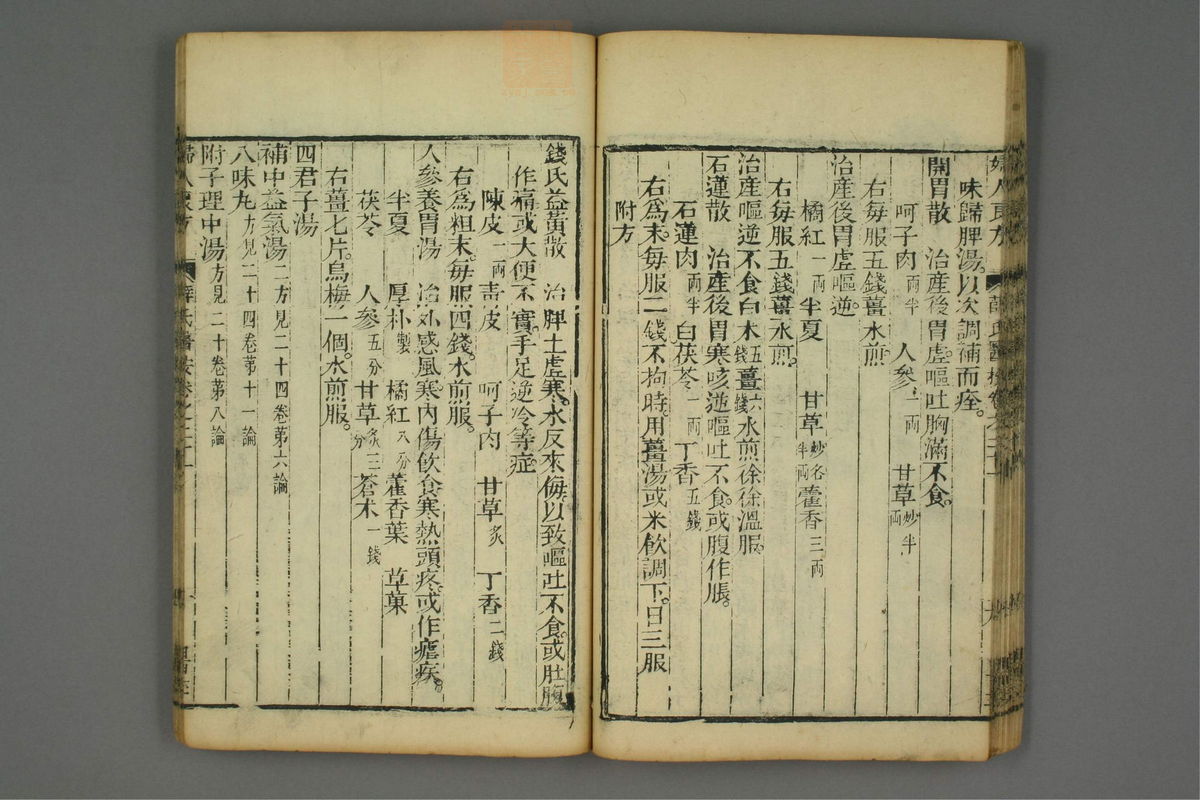 婦人良方
味歸脾湯以次調補而痊。
開胃散　治產後胃虛嘔吐胸滿不食。
呵子肉一兩半　人參一兩　甘草炒半兩
右每服五錢薑水煎
治產後胃虛嘔逆
橘紅一兩　半夏　甘草炒各半兩　藿香三兩
右每服五錢薑水煎。
治產嘔逆不食白朮五錢薑六錢水煎徐徐溫服。
石蓮散　治產後胃寒咳逆嘔吐不食。或腹作脹。
石蓮肉兩半　白茯苓一兩　丁香五錢
右爲末。每服二錢不拘時。用薑湯或米飲調下。日三服
附方
錢氏益黃散　治脾土虛寒。水反來侮。以致嘔吐不食。或肚腹
作痛或大便不實。手足逆冷等症。
陳皮一兩　靑皮　呵子肉　甘草炙　丁香二錢
右爲粗末。每服四錢。水煎服。
人參養胃湯　治外感風寒內傷飲食寒熱頭疼。或作瘧疾。
半夏　厚朴製　橘紅八分　藿香葉　草菓
茯苓　人參五分　甘草炙三分　蒼朮一錢
右薑七片。烏梅一個。水煎服。
四君子湯
補中益氣湯二方見二十四卷第六論
八味丸方見二十四卷第十一論
附子理中湯方見二十卷第八論